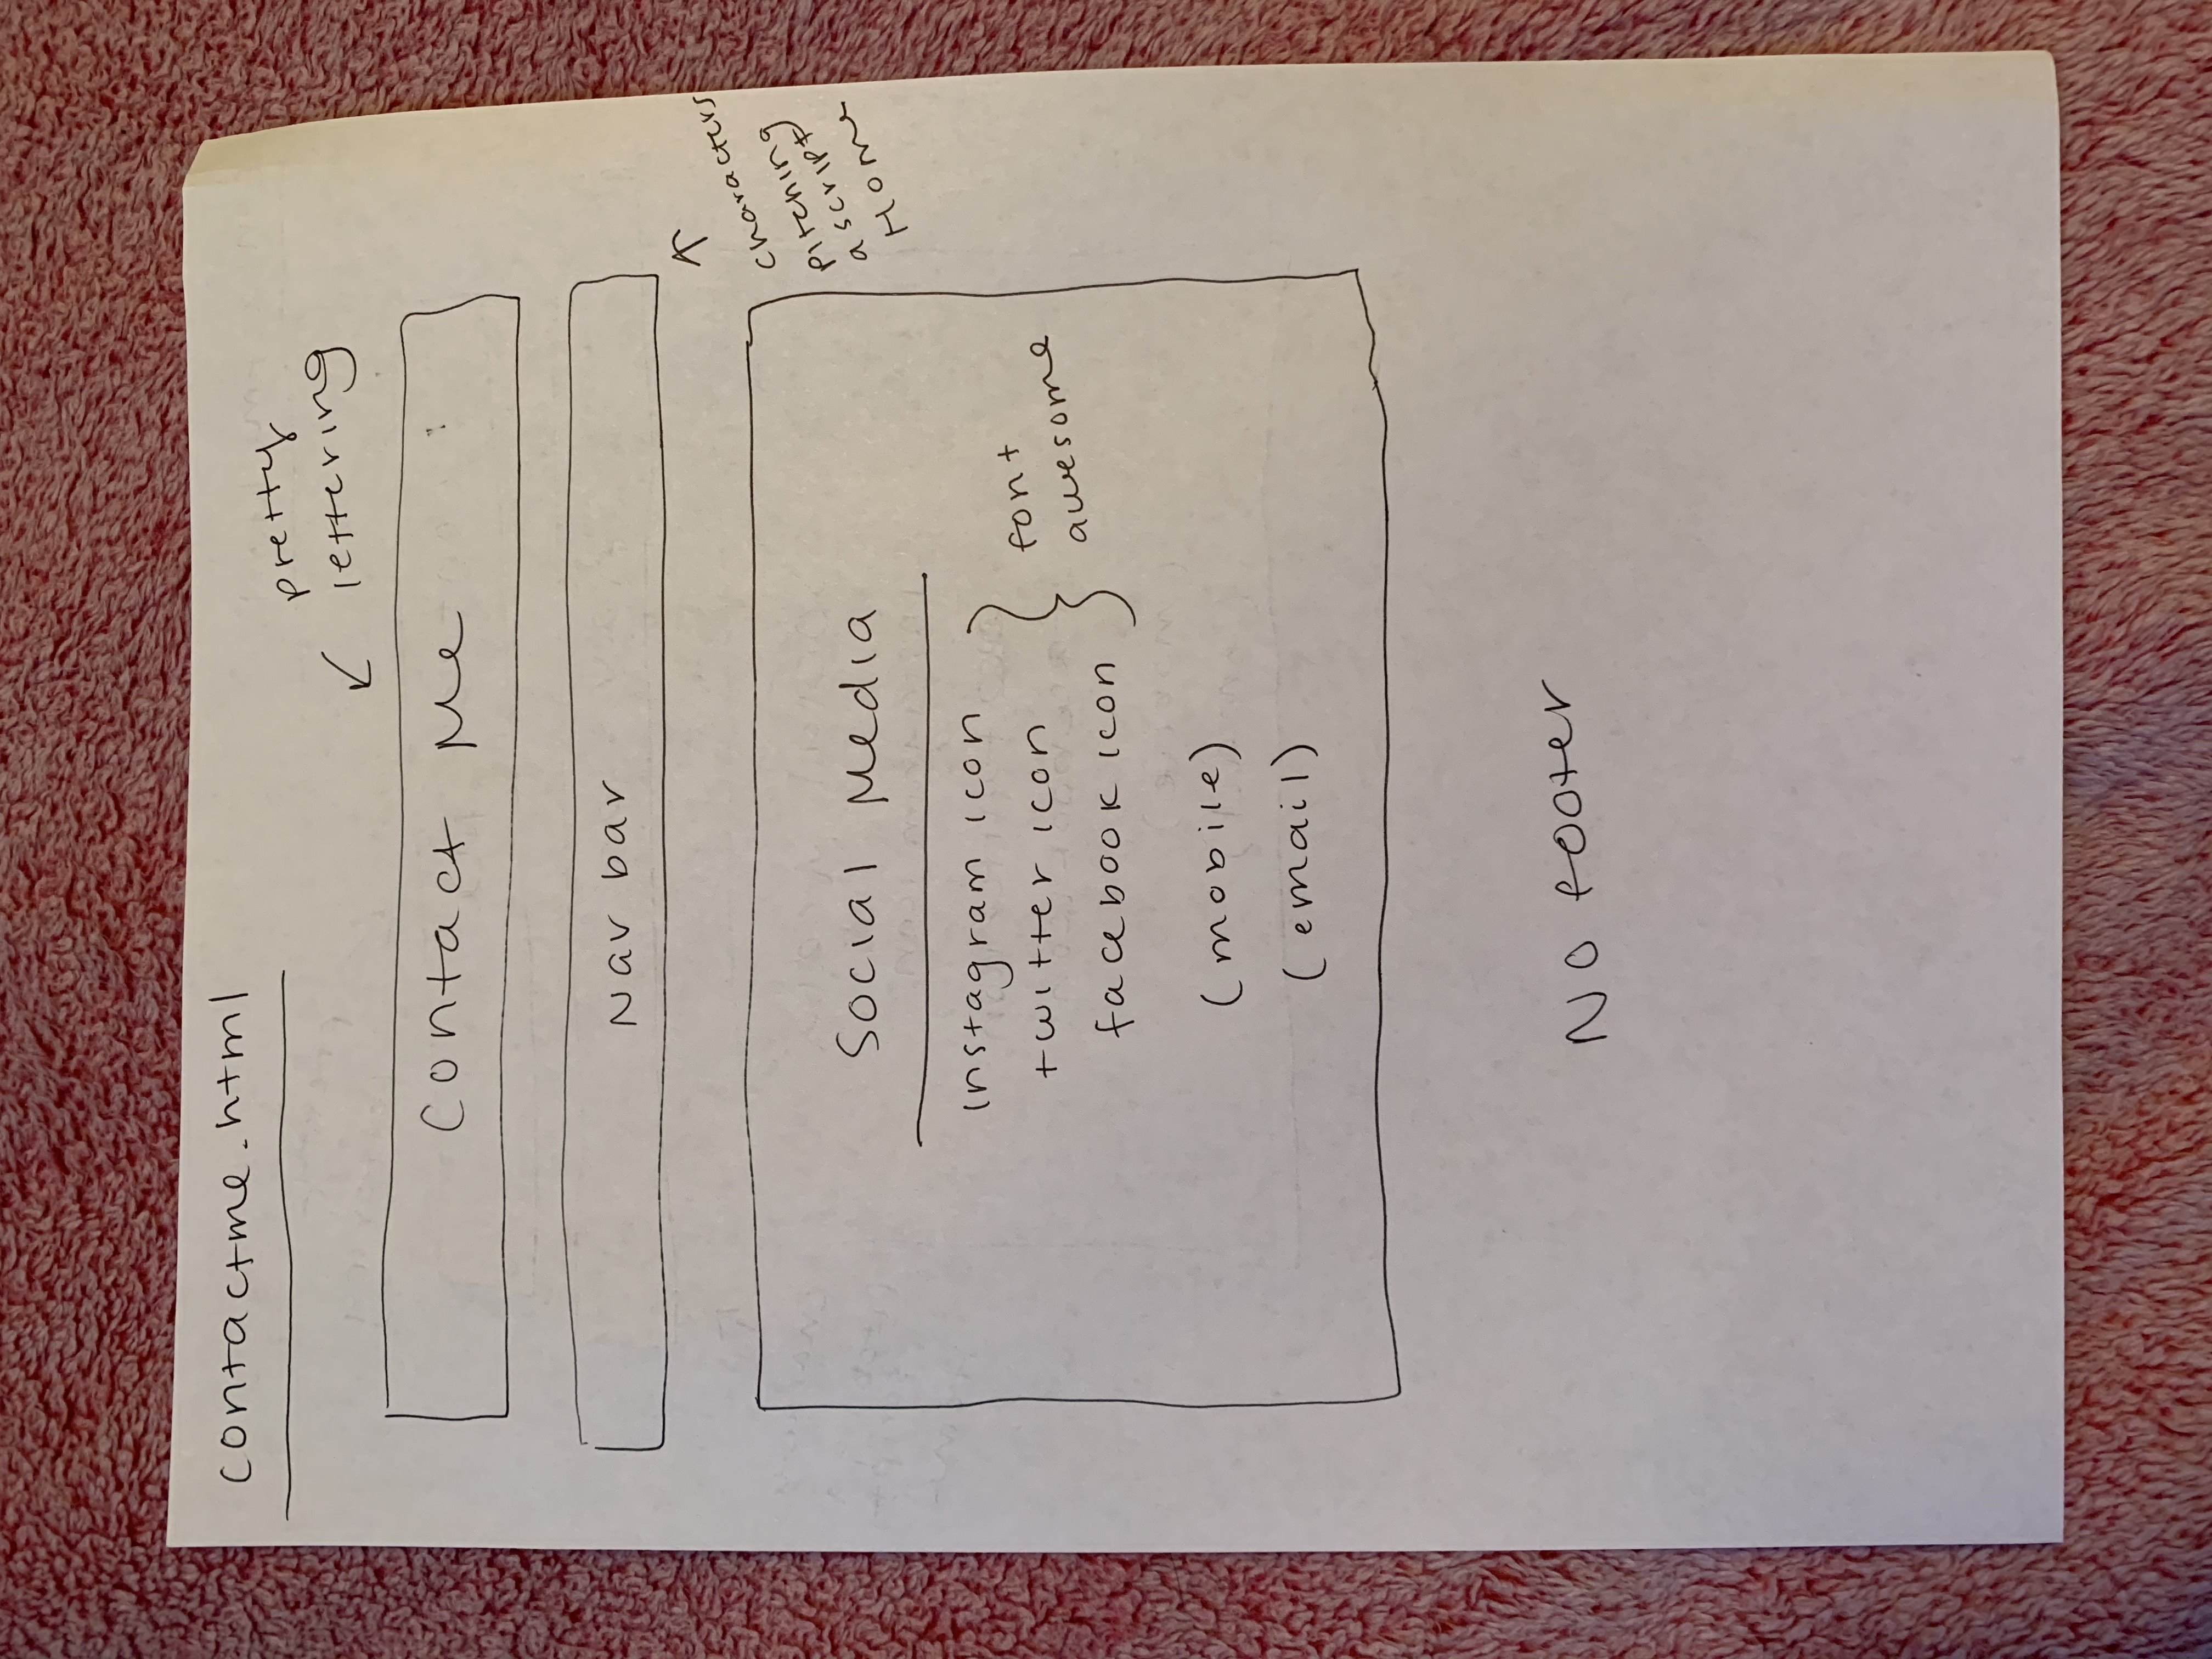 contactme.html
pretty
lettering
Contact Me
Nav bar
characters
pitching
a script
Home
Social Media
instagram icon
twitter icon
facebook icon
font
awesome
(mobile)
(email)
No footer